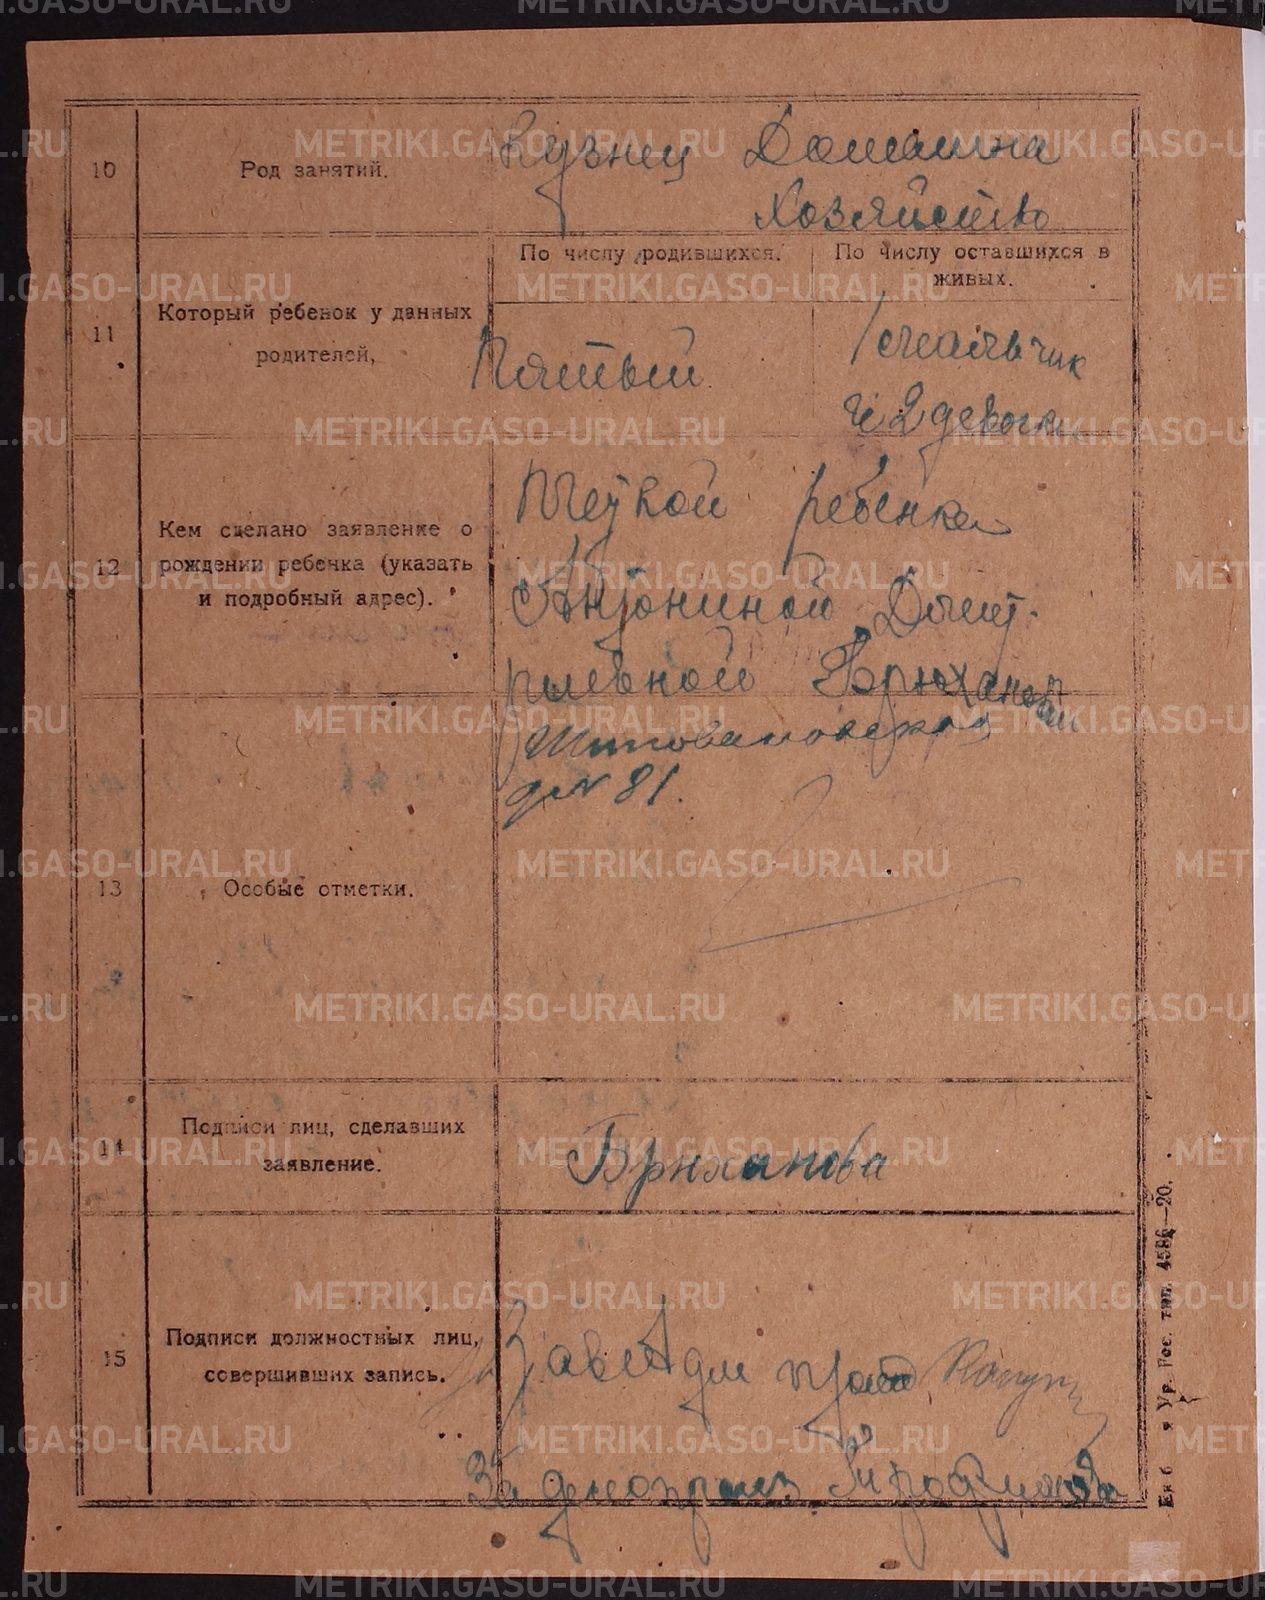 10
Род занятий.
Кузнец
Домашна
Хозяйство
11
Который ребенок у данных
родителей,
По числу родившихся.
По числу оставшихся в
живых.
Пятый
1 мальчик
и 2 девочк
12
Кем сделано заявление о
рождении ребенка (указать
и подробный адрес).
Меткой ребенка
Антониной Дмит-
риевной Брюхановой
д № 81.
13
Особые отметки.
14
Подписи лиц, сделавших
заявление.
Брюханова
15
Подписи должностных лиц,
совершивших запись.
За делопроиз Трофимова
Ур. Гос. тип. 4586—20.
METRIKI.GASO-URAL.RU